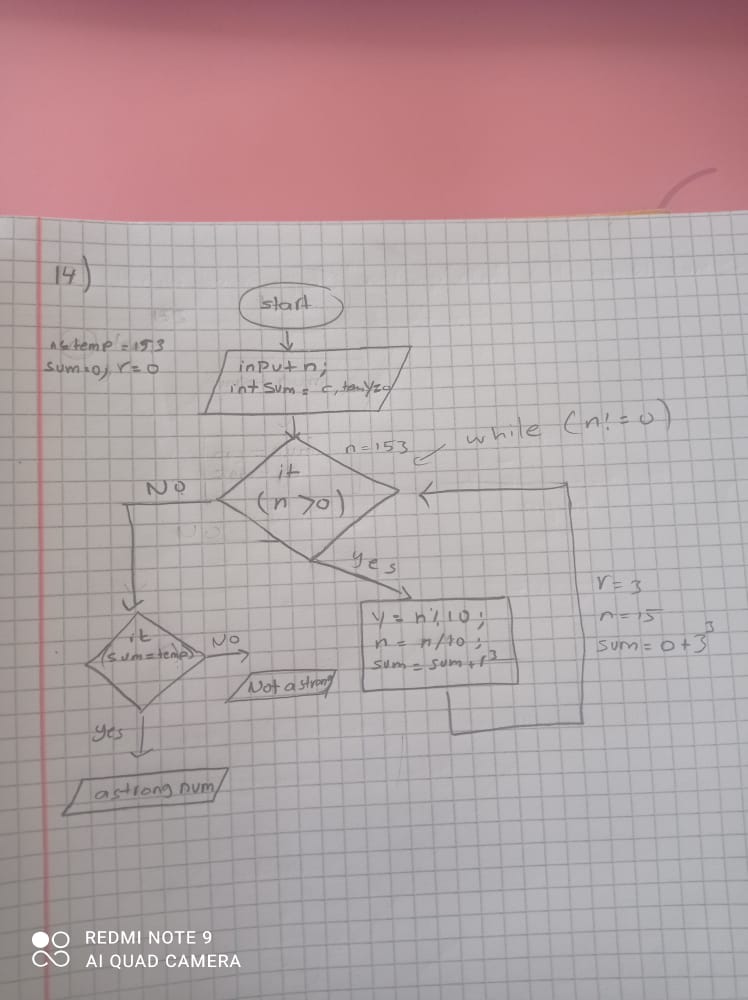 14)
start
temp = 153
sum=0, r=0
input n;
int sum =
n=153
while (n!=0)
if
(n>0)
NO
yes
r = n%10;
n = n/10;
sum = sum+r³
r=3
n=15
sum= 0+3³
if
(sum=temp)
NO
Not a strong
yes
a strong num
REDMI NOTE 9
AI QUAD CAMERA